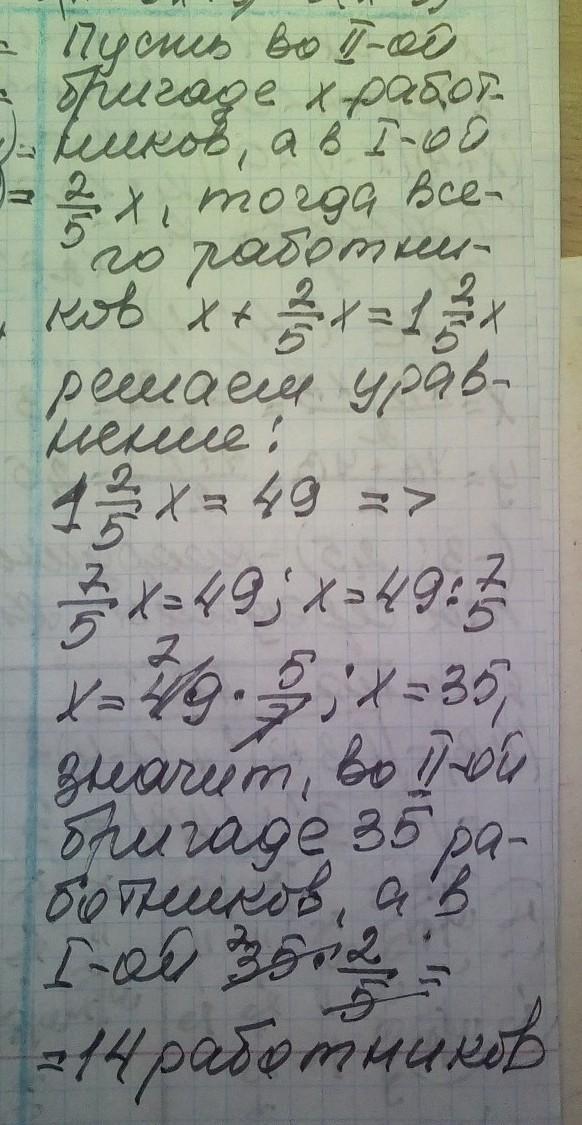 Пусть во II-ой
бригаде x работ-
ников, а в I-ой
2/5 x, тогда все-
го работни-
ков x + 2/5 x = 1 2/5 x
решаем урав-
нение:
1 2/5 x = 49 =>
7/5 x = 49; x = 49 : 7/5
x = 49 7 · 5/7; x = 35,
значит, во II-ой
бригаде 35 ра-
ботников, а в
I-ой 35 7 · 2/5 =
= 14 работников